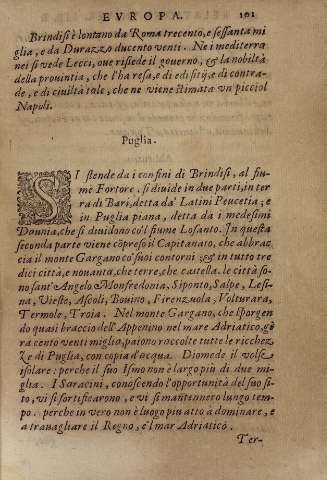 EVROPA. 101
Brindisi è lontano da Roma trecento, e sessanta mi
glia, e da Durazzo ducento venti. Ne i mediterra
nei si vede Lecci, oue risiede il gouerno, & la nobiltà
della prouintia, che l'ha resa, e di edifitij, e di contra-
de, e di ciuiltà tale, che ne viene stimata vn picciol
Napoli.
Puglia.
SI stende da i confini di Brindisi, al fiu
me Fortore, si diuide in due parti, in ter
ra di Bari, detta da' Latini Peucetia; e
in Puglia piana, detta da i medesimi
Daunia, che si diuidono co'l fiume Lofanto. In questa
seconda parte viene cōpreso il Capitanato, che abbrac
cia il monte Gargano co' suoi contorni & in tutto tre
dici città, e nouanta, che terre, che castella. le città so-
no sant'Angelo Monfredonia, Siponto, Salpe, Lesi-
na, Vieste, Ascoli, Bouino, Firenzuola, Volturara,
Termole, Troia. Nel monte Gargano, che sporgen
do quasi braccio dell'Appenino nel mare Adriatico, gē
ra cento venti miglio, paiono raccolte tutte le ricchez
ze di Puglia, con copia d'acqua. Diomede il volse
isolare: perche il suo Ismo non è largo piu di due mi-
glia. I Saracini, conoscendo l'opportunità del suo si-
to, vi si fortificarono, e vi si mantennero lungo tem-
po. perche in vero non è luogo piu atto a dominare, e
a trauagliare il Regno, e'l mar Adriatico.
Ter-